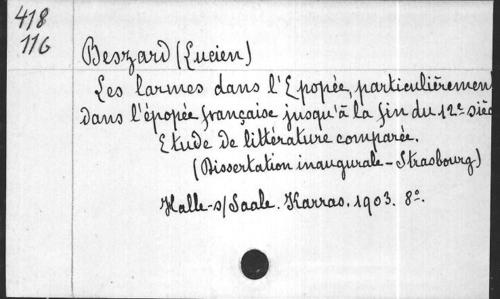 418
116
Beszard (Lucien)
Les larmes dans l'Epopée, particulièremen
dans l'épopée française jusqu'à la fin du 12e sièc
Etude de littérature comparée.
(Dissertation inaugurale - Strasbourg)
Halle-s/Saale. Karras. 1903. 8o.